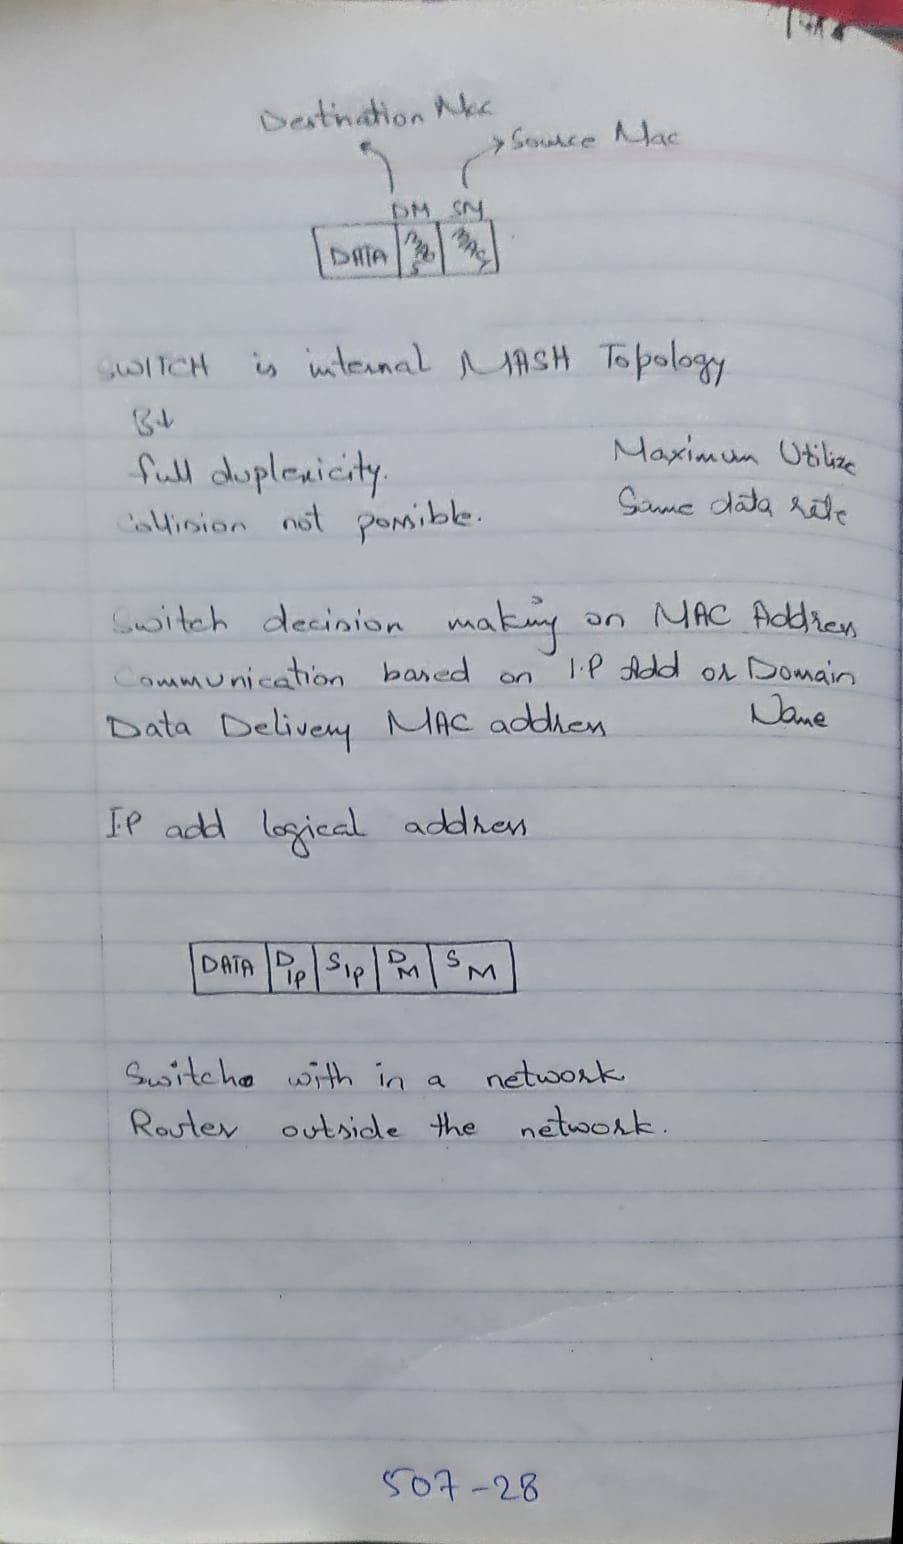 Destination Mac
Source Mac
DM SM
DATA
SWITCH is internal MASH Topology
full duplexicity.
Maximum Utilize
Collision not possible.
Same data rate
Switch decision making on MAC Address
Communication based on I.P Add or Domain
Name
Data Delivery MAC address
I.P add logical address
DATA DIP SIP DM SM
Switch with in a network
Router outside the network.
507-28